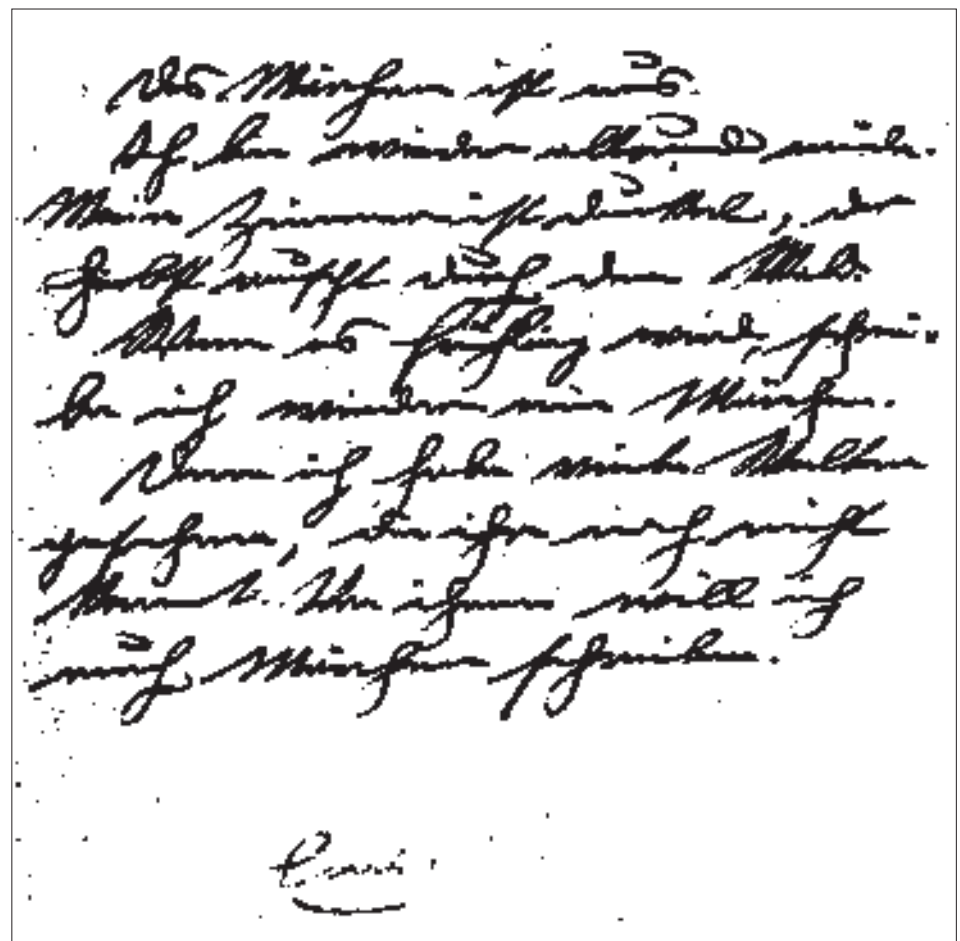 Das Märchen ist aus.
Ich bin wieder alt und müde.
Mein Zimmer ist dunkel, der
Herbst rauscht durch den Wald.
Wenn es Frühling wird, schrei-
be ich wieder ein Märchen.
Denn ich habe viele Welten
gesehen, die ihr noch nicht
kennt. Von ihnen will ich
euch Märchen schreiben.